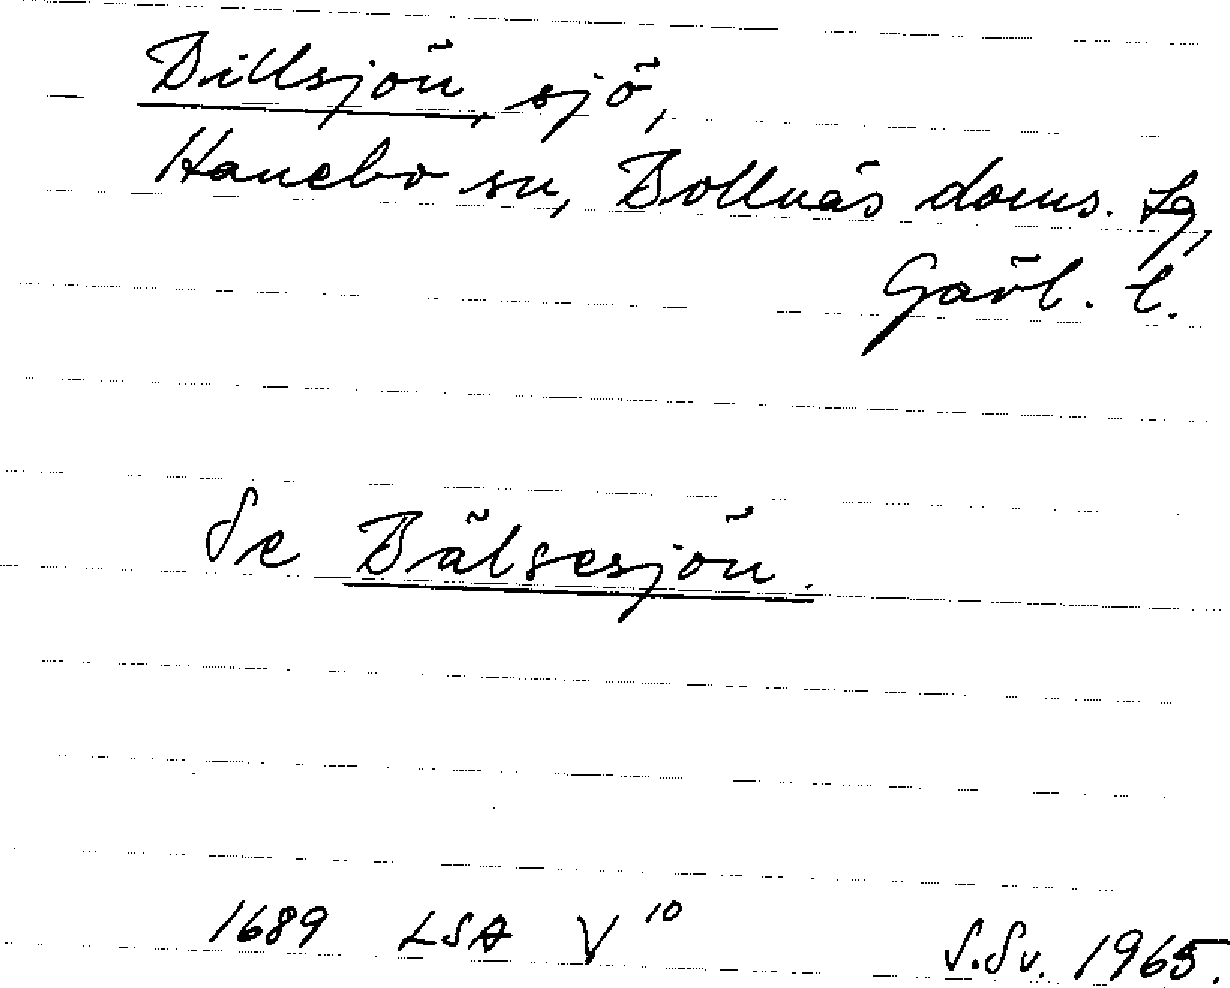 Billsjön, sjö,
Hanebo sn, Bollnäs doms. Lg,
Gävl. l.
Se Bälsesjön.
1689 LSA V 10
S.Sv. 1965.